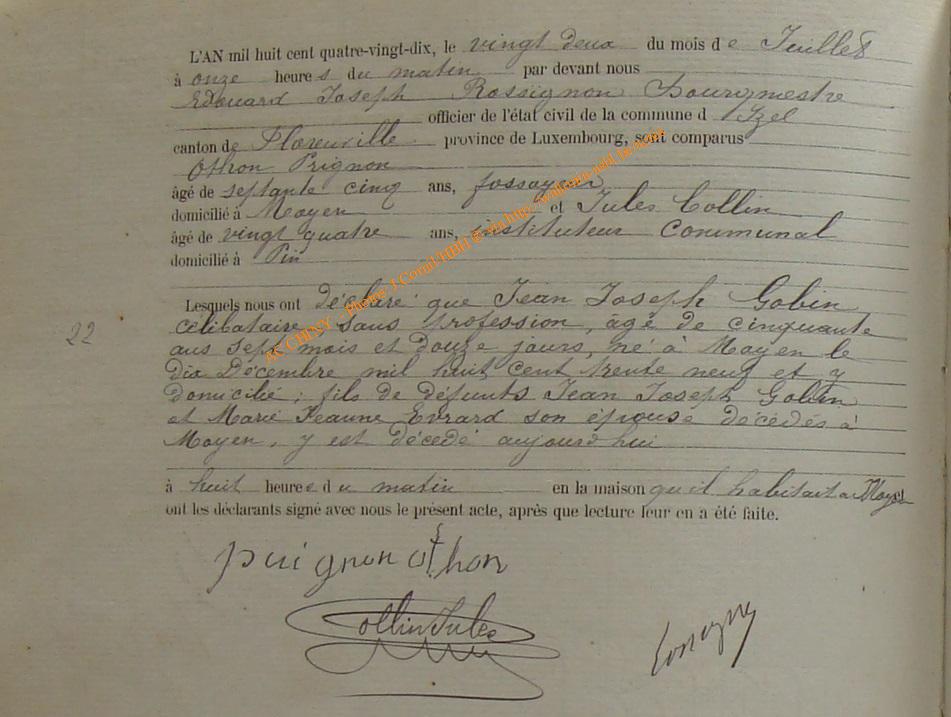 L'AN mil huit cent quatre-vingt-dix, le vingt deux du mois de Juillet
à onze heures du matin par devant nous
Edouard Joseph Rossignon Bourgmestre
officier de l'état civil de la commune d'Izel
canton de Florenville province de Luxembourg, sont comparus
Othon Prignon
âgé de septante cinq ans, fossoyeur
domicilié à Moyen et Jules Collin
âgé de vingt quatre ans, instituteur communal
domicilié à Pin
Lesquels nous ont déclaré que Jean Joseph Gobin
célibataire sans profession, âgé de cinquante
ans sept mois et douze jours, né à Moyen le
dix Décembre mil huit cent trente neuf et y
domicilié ; fils de défunts Jean Joseph Gobin
et Marie Jeanne Evrard son épouse décédés à
Moyen, y est décédé aujourd'hui
22
à huit heures du matin en la maison qu'il habitait à Moyen
ont les déclarants signé avec nous le présent acte, après que lecture leur en a été faite.
prignon othon
Collin Jules
AC CHINY - Photo J.Count HBH @ via.luxy